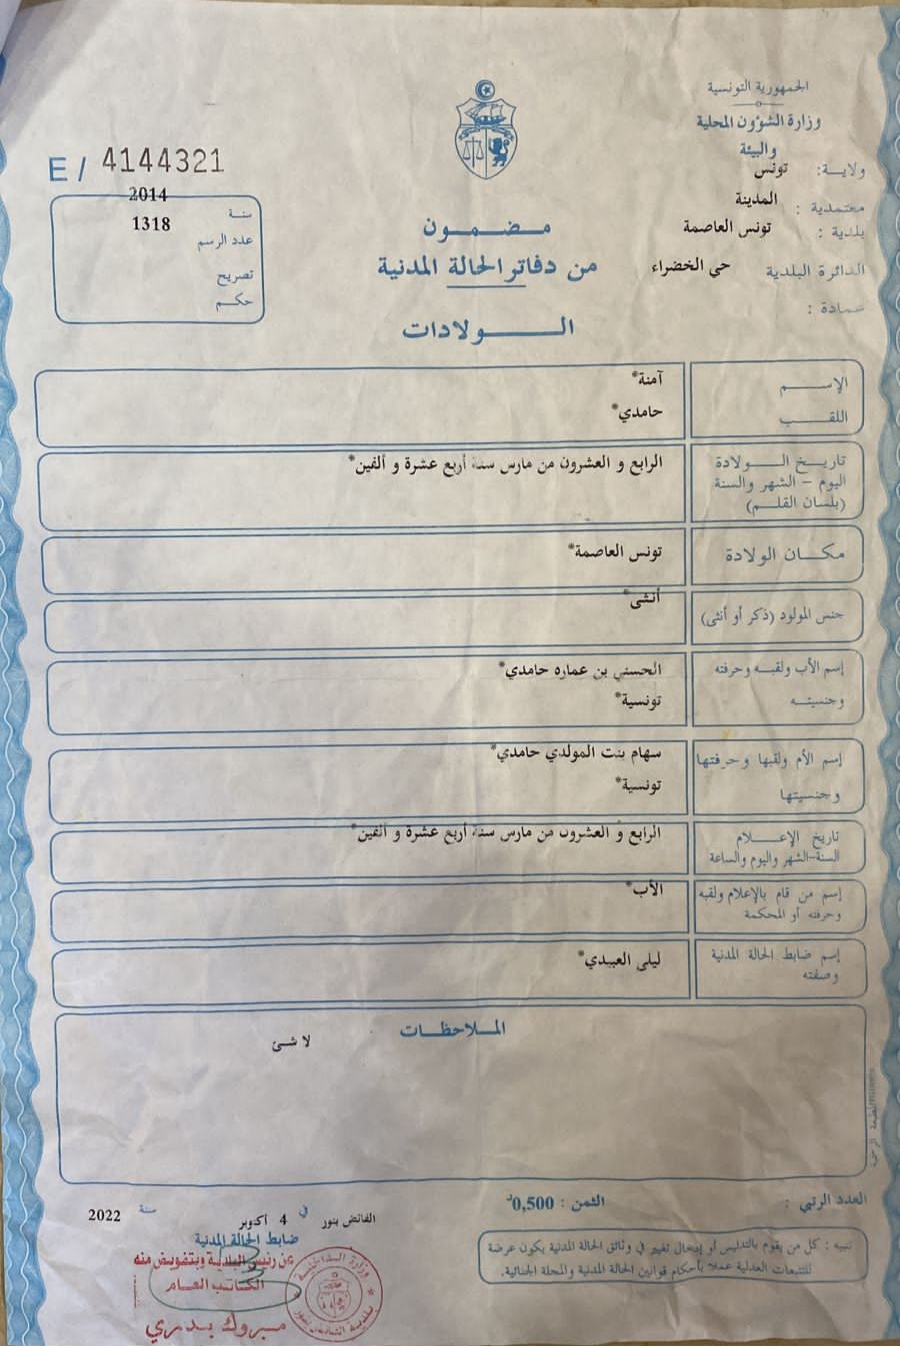 الجمهورية التونسية
وزارة الشؤون المحلية
والبيئة
ولاية: تونس
معتمدية : المدينة
بلدية : تونس العاصمة
الدائرة البلدية حي الخضراء
عمادة :
E / 4144321
سنة 2014
عدد الرسم 1318
تصريح
حكم
مضمون
من دفاتر الحالة المدنية
الولادات
الإسم آمنة*
اللقب حامدي*
تاريخ الولادة
اليوم - الشهر والسنة
(بلسان القلم)
الرابع و العشرون من مارس سنة أربع عشرة و ألفين*
مكان الولادة تونس العاصمة*
جنس المولود (ذكر أو أنثى) أنثى*
إسم الأب ولقبه وحرفته
وجنسيته
الحسني بن عماره حامدي*
تونسية*
إسم الأم ولقبها وحرفتها
وجنسيتها
سهام بنت المولدي حامدي*
تونسية*
تاريخ الإعلام
السنة-الشهر واليوم والساعة
الرابع و العشرون من مارس سنة أربع عشرة و ألفين*
إسم من قام بالإعلام ولقبه
وحرفته أو المحكمة
الأب*
إسم ضابط الحالة المدنية
وصفته
ليلى العبيدي*
الملاحظات
لا شئ
العدد الرتبي :
الثمن : 0,500د
تنبيه : كل من يقوم بالتدليس أو إدخال تغيير في وثائق الحالة المدنية يكون عرضة
للتتبعات العدلية عملا بأحكام قوانين الحالة المدنية والمجلة الجنائية.
الفائض بنور في 4 أكتوبر سنة 2022
ضابط الحالة المدنية
عن رئيس البلدية وبتفويض منه
الكاتب العام
مبروك بدري